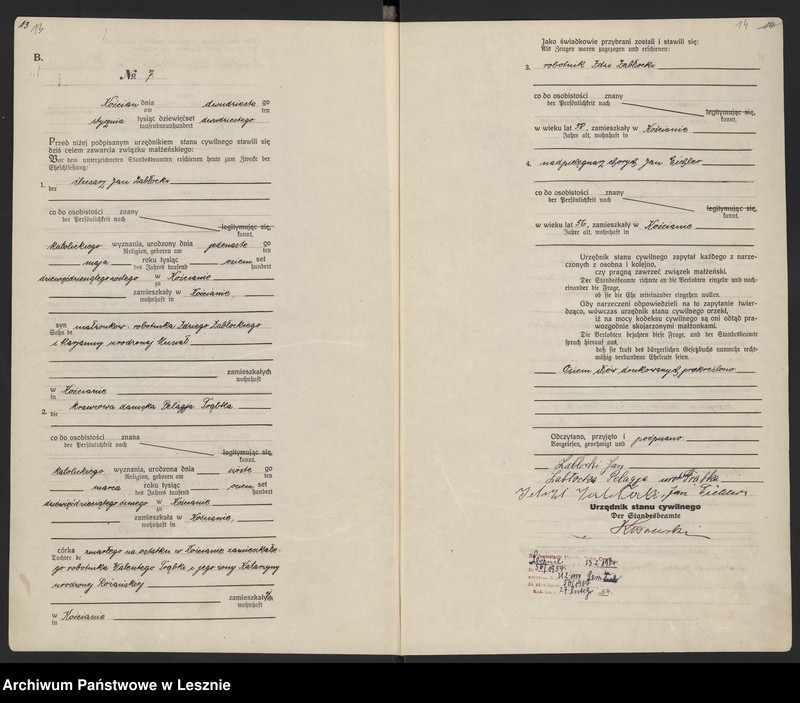 13 13
B.
No. 7
Kościan dnia dwudziesto go
am ten
stycznia tysiąc dziewięćset dwudziestego
tausendneunhundert
Przed niżej podpisanym urzędnikiem stanu cywilnego stawili się
dziś celem zawarcia związku małżeńskiego:
Vor dem unterzeichneten Standesbeamten erschienen heute zum Zwecke der
Eheschließung:
1. ślusarz Jan Żabłocki
der
co do osobistości znany
der Persönlichkeit nach
legitymując się,
kannt,
katolickiego wyznania, urodzony dnia jedenaste go
Religion, geboren am ten
maja roku tysiąc osiem set
des Jahres tausend hundert
dziewięćdziesiątego w Kościanie
zu
zamieszkały w Kościanie,
wohnhaft in
syn małżonków: robotnika Idziego Żabłockiego
Sohn de
i Karyanny urodzonej
zamieszkałych
wohnhaft
w Kościanie
in
2. krawcowa damska Pelagja Trąbka
die
co do osobistości znana
der Persönlichkeit nach
legitymując się,
kannt,
katolickiego wyznania, urodzona dnia szóste go
Religion, geboren am ten
marca roku tysiąc osiem set
des Jahres tausend hundert
dziewięćdziesiątego ósmego w Kościanie
zu
zamieszkała w Kościanie,
wohnhaft in
córka zmarłego na ostatku w Kościanie zamieszkałe-
Tochter de
go robotnika Walentego Trąbki i jego żony Katarzyny
urodzonej
zamieszkałych
wohnhaft
w Kościanie
in
14
Jako świadkowie przybrani zostali i stawili się:
Als Zeugen waren zugezogen und erschienen:
3. robotnik Idzi Żabłocki
co do osobistości znany
der Persönlichkeit nach
legitymując się,
kannt,
w wieku lat 58, zamieszkały w Kościanie
Jahre alt, wohnhaft in
4. nadpielęgniarz chorych Jan
co do osobistości znany
der Persönlichkeit nach
legitymując się,
kannt,
w wieku lat 56, zamieszkały w Kościanie
Jahre alt, wohnhaft in
Urzędnik stanu cywilnego zapytał każdego z narze-
czonych z osobna i kolejno,
czy pragną zawrzeć związek małżeński.
Der Standesbeamte richtete an die Verlobten einzeln und nach-
einander die Frage,
ob sie die Ehe miteinander eingehen wollen.
Gdy narzeczeni odpowiedzieli na to zapytanie twier-
dząco, wówczas urzędnik stanu cywilnego orzekł,
iż na mocy kodeksu cywilnego są oni odtąd pra-
wozgodnie skojarzonymi małżonkami.
Die Verlobten bejahten diese Frage, und der Standesbeamte
sprach hierauf aus,
daß sie kraft des bürgerlichen Gesetzbuchs nunmehr recht-
mäßig verbundene Eheleute seien.
Osiem słów drukowanych przekreślono.
Odczytano, przyjęto i podpisano
Vorgelesen, genehmigt und
Żabłocki Jan
Żabłocka Pelagja urodz. Trąbka
Jan
Urzędnik stanu cywilnego
Der Standesbeamte
Archiwum Państwowe w Lesznie